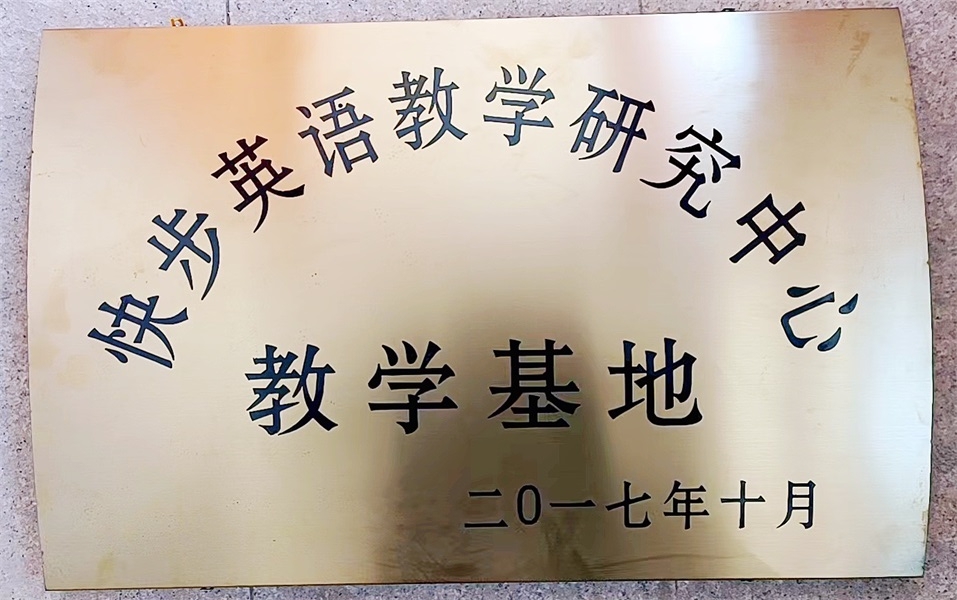 快步英语教学研究中心
教学基地
二0一七年十月